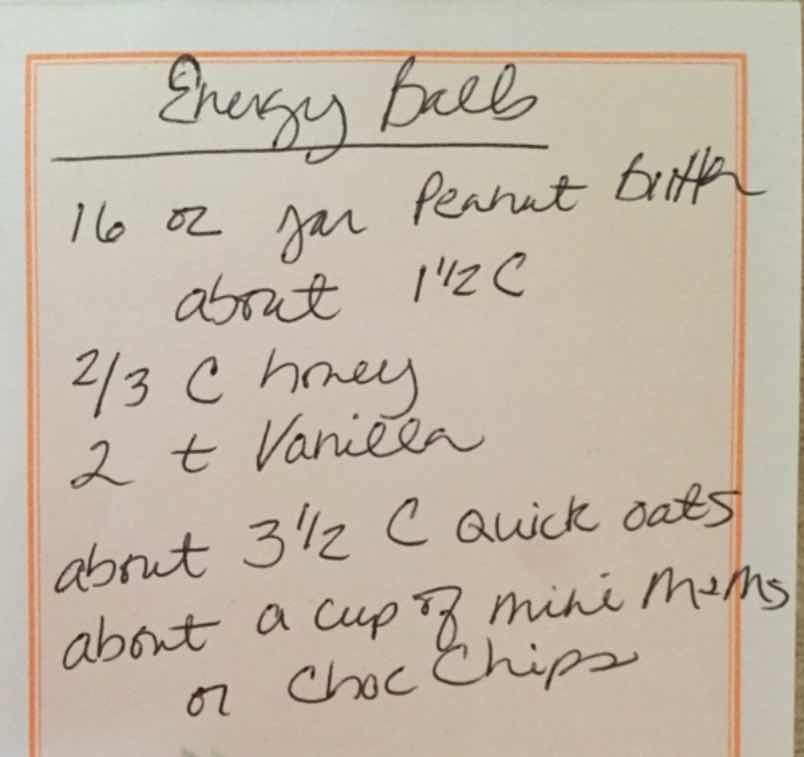 Energy Balls
16 oz jar Peanut Butter
about 1 1/2 C
2/3 C honey
2 t Vanilla
about 3 1/2 C Quick oats
about a cup of mini M+Ms
or Choc Chips